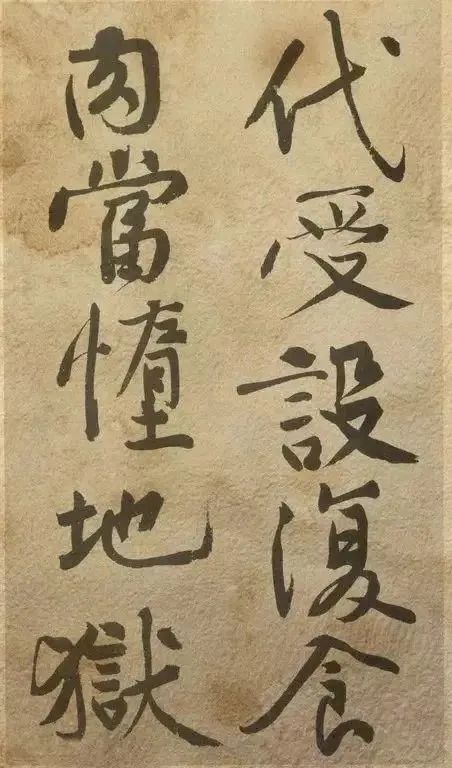 代受設復食
肉當墯地獄